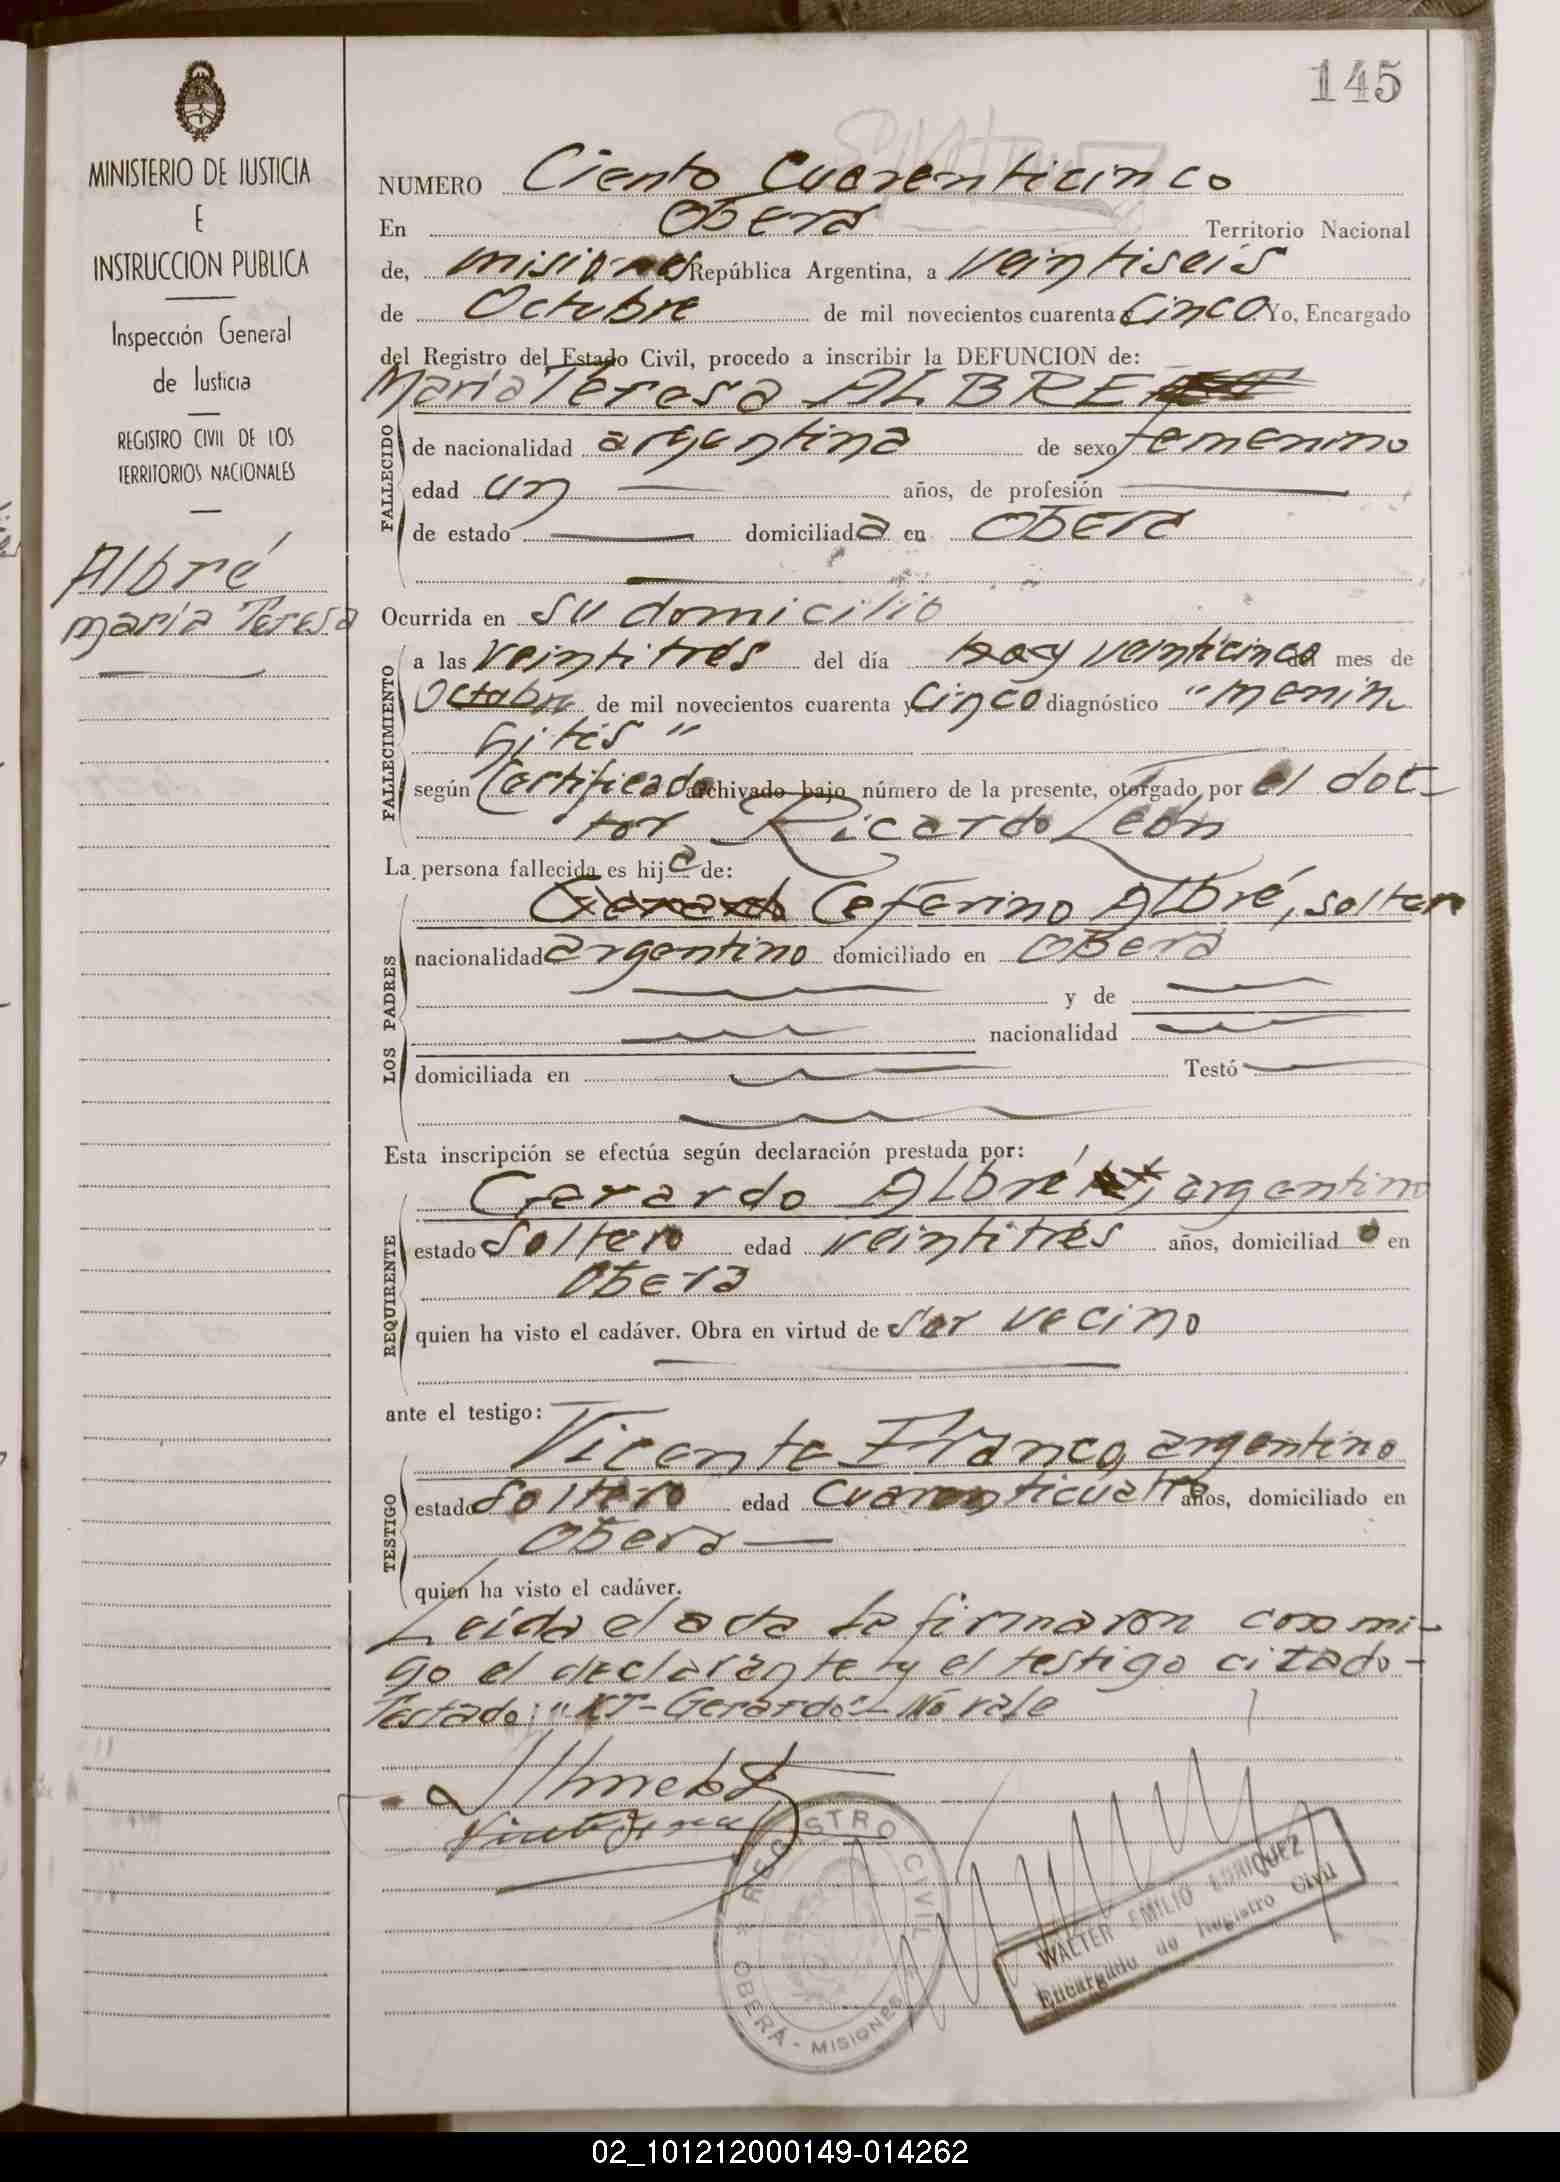 145
MINISTERIO DE JUSTICIA
E
INSTRUCCION PUBLICA
Inspección General
de Justicia
REGISTRO CIVIL DE LOS
TERRITORIOS NACIONALES
Albré
maría Teresa
NUMERO Ciento Cuarenticinco
En Oberá Territorio Nacional
de, misiones República Argentina, a veintiseis
de Octubre de mil novecientos cuarenta y cinco Yo, Encargado
del Registro del Estado Civil, procedo a inscribir la DEFUNCION de:
María Teresa ALBRE
FALLECIDO
de nacionalidad argentina de sexo femenino
edad un años, de profesión
de estado domiciliada en Oberá
Ocurrida en su domicilio
FALLECIMIENTO
a las veintitrés del día veinticinco del mes de
Octubre de mil novecientos cuarenta y cinco diagnóstico "menin
gitis"
según Certificado archivado bajo número de la presente, otorgado por el doc-
tor Ricardo León
La persona fallecida es hija de:
LOS PADRES
Gerardo Ceferino Albré, soltero
nacionalidad argentino domiciliado en Oberá
y de
nacionalidad
domiciliada en Testó
Esta inscripción se efectúa según declaración prestada por:
REQUIRENTE
Gerardo Albré kt, argentino
estado soltero edad veintitrés años, domiciliado en
Oberá
quien ha visto el cadáver. Obra en virtud de ser vecino
ante el testigo:
TESTIGO
Vicente Franco, argentino
estado soltero edad cuarenticuatro años, domiciliado en
Oberá
quien ha visto el cadáver.
Leida el acta la firmaron conmi-
go el declarante y el testigo citado-
Testado: "KT-Gerardo"- No vale
REGISTRO CIVIL
OBERÁ - MISIONES
WALTER EMILIO ENRIQUEZ
Encargado de Registro Civil
02_101212000149-014262